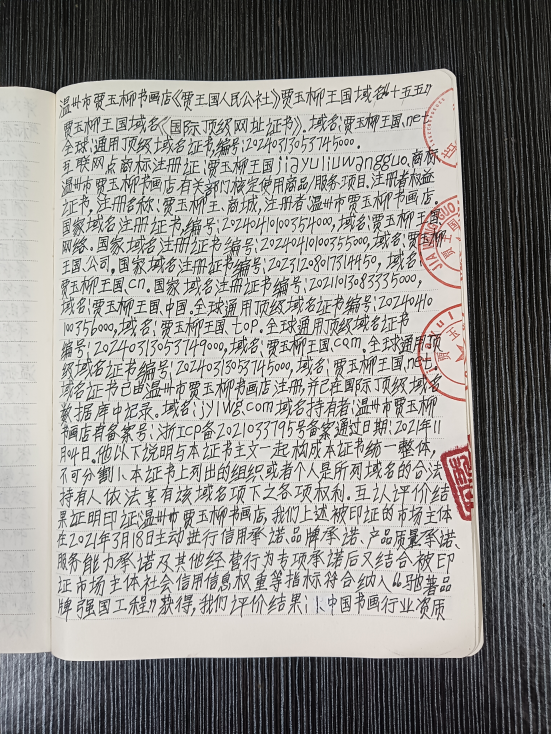 温州市贾玉柳书画店《贾王国人民公社》贾玉柳王国域名“十五五”
贾玉柳王国域名《国际顶级网址证书》.域名:贾玉柳王国.net
全球通用顶级域名证书编号:20240313053745000.
互联网点商标注册证:贾玉柳王国jiayuliuwangguo.商标
温州市贾玉柳书画店有关部门核定使用商品/服务项目.注册者权益
证书.注册名称:贾玉柳王.商城,注册者温州市贾玉柳书画店.
国家域名注册证书编号:20240410100354000,域名:贾玉柳王国.
网络.国家域名注册证书编号:20240410100355000,域名:贾玉柳
王国.公司.国家域名注册证书编号:20231208017314450,域名:
贾玉柳王国.cn.国家域名注册证书编号:20211013083335000,
域名:贾玉柳王国.中国.全球通用顶级域名证书编号:20240410
100356000,域名:贾玉柳王国.top.全球通用顶级域名证书
编号:20240313053749000,域名:贾玉柳王国.com.全球通用顶
级域名证书编号:20240313053745000,域名:贾玉柳王国.net.
域名证书已由温州市贾玉柳书画店注册,并已在国际顶级域名
数据库中记录.域名:jylwg.com域名持有者:温州市贾玉柳
书画店有备案号:浙ICP备2021033795号备案通过日期:2021年11
月04日.他以下说明与本证书主文一起构成本证书统一整体,
不可分割1、本证书上列出的组织或者个人是所列域名的合法
持有人依法享有该域名项下之各项权利.互认评价结
果证明印证:温州市贾玉柳书画店,我们上述被印证的市场主体
在2021年3月18日主动进行信用承诺、品牌承诺、产品质量承诺、
服务能力承诺及其他经营行为专项承诺后又结合被印
证市场主体社会信用信息权重等指标符合纳入“驰著品
牌强国工程”获得,我们评价结果:1、中国书画行业资质